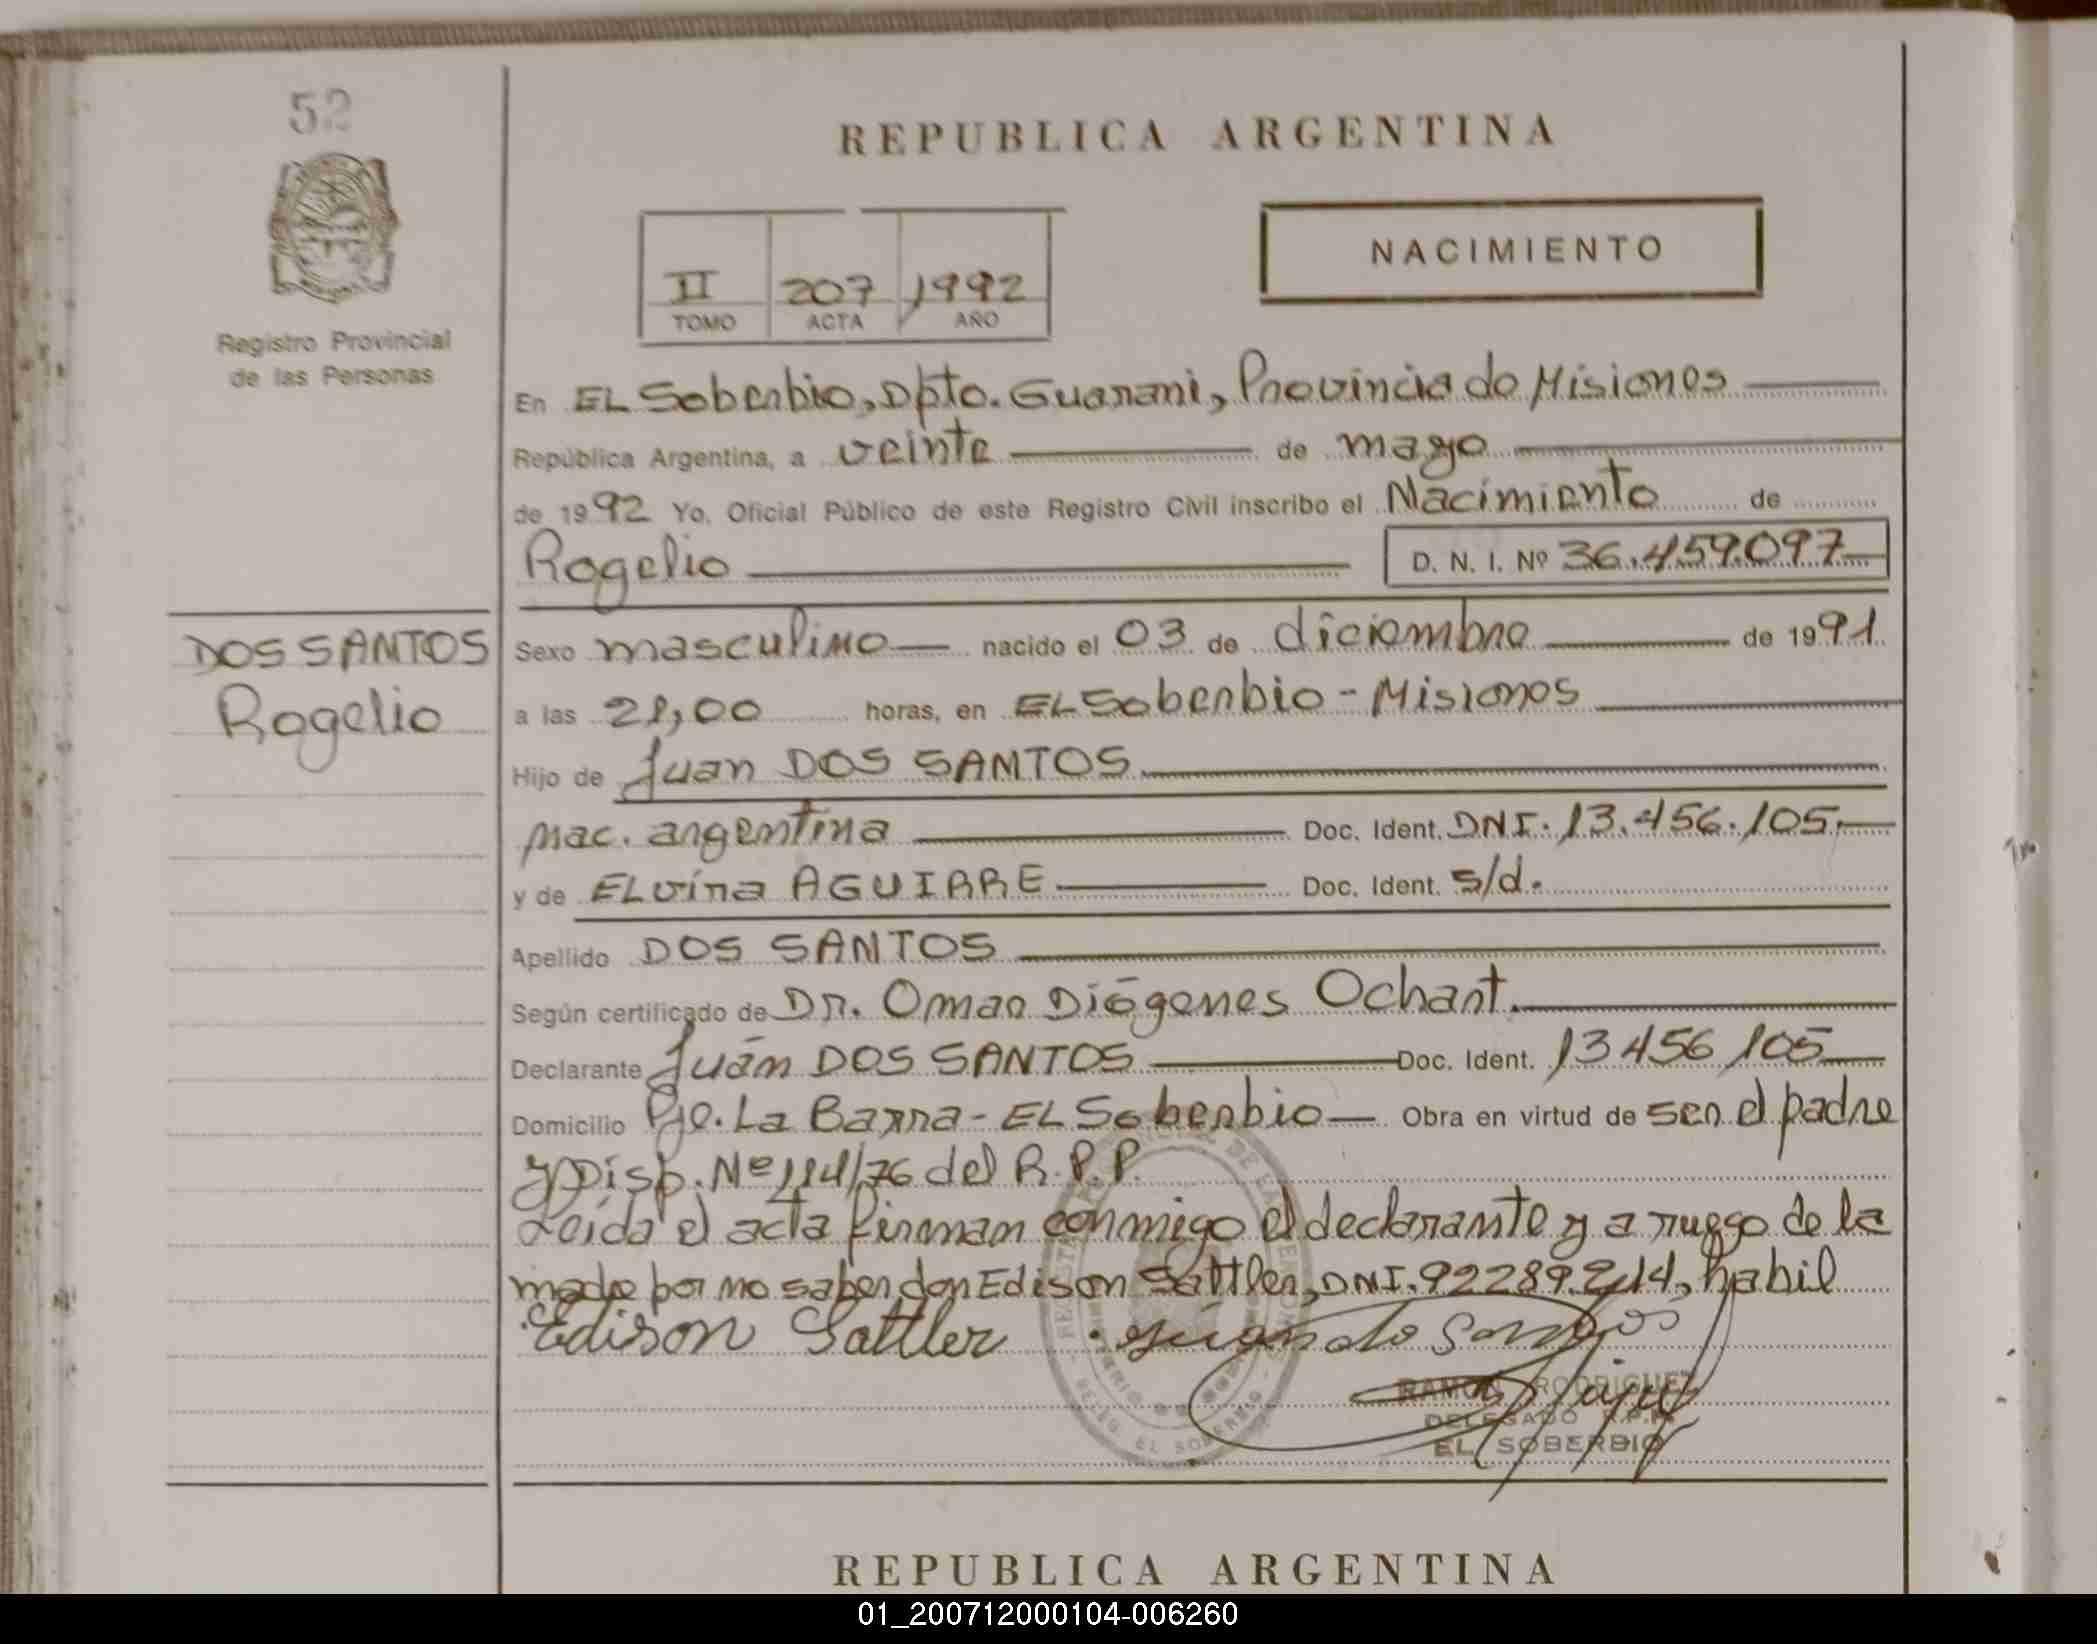 52
REPUBLICA ARGENTINA
NACIMIENTO
II 207 1992
TOMO ACTA AÑO
Registro Provincial
de las Personas
En EL Soberbio, Dpto. Guarani, Provincia de Misiones
República Argentina, a veinte de mayo
de 1992 Yo, Oficial Público de este Registro Civil inscribo el Nacimiento de
Rogelio D. N. I. Nº 36.459.097
DOS SANTOS
Rogelio
Sexo masculino nacido el 03 de diciembre de 1991
a las 21,00 horas, en EL Soberbio - Misiones
Hijo de Juan DOS SANTOS
nac. argentina Doc. Ident. DNI. 13.456.105.
y de ELvira AGUIRRE Doc. Ident. s/d.
Apellido DOS SANTOS
Según certificado de Dr. Omar Diógenes Ochant.
Declarante Juán DOS SANTOS Doc. Ident. 13456105
Domicilio Pje. La Barra - EL Soberbio Obra en virtud de ser el padre
y Disp. Nº 114/76 del R.P.P.
Leída el acta firman conmigo el declarante y a ruego de la
madre por no saber don Edison Sattler, DNI. 92289.214, habil
Edison Sattler
RAMON RODRIGUEZ
DELEGADO R.P.P.
EL SOBERBIO
REPUBLICA ARGENTINA
01_200712000104-006260